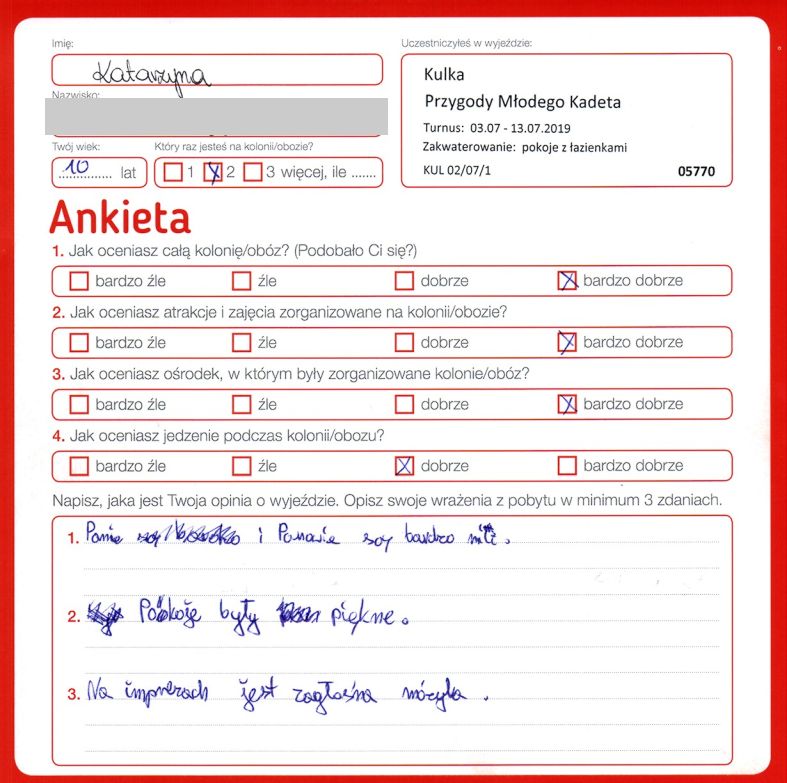 Imię:
Katarzyna
Nazwisko:
Twój wiek:
10 lat
Który raz jesteś na kolonii/obozie?
1 X 2 3 więcej, ile .......
Uczestniczyłeś w wyjeździe:
Kulka
Przygody Młodego Kadeta
Turnus: 03.07 - 13.07.2019
Zakwaterowanie: pokoje z łazienkami
KUL 02/07/1 05770
Ankieta
1. Jak oceniasz całą kolonię/obóz? (Podobało Ci się?)
bardzo źle źle dobrze X bardzo dobrze
2. Jak oceniasz atrakcje i zajęcia zorganizowane na kolonii/obozie?
bardzo źle źle dobrze X bardzo dobrze
3. Jak oceniasz ośrodek, w którym były zorganizowane kolonie/obóz?
bardzo źle źle dobrze X bardzo dobrze
4. Jak oceniasz jedzenie podczas kolonii/obozu?
bardzo źle źle X dobrze bardzo dobrze
Napisz, jaka jest Twoja opinia o wyjeździe. Opisz swoje wrażenia z pobytu w minimum 3 zdaniach.
1. Panie i Panowie soy bardzo mili.
2. Pookoje były piękne.
3. Na imprezach jest zagłośna mózyka.